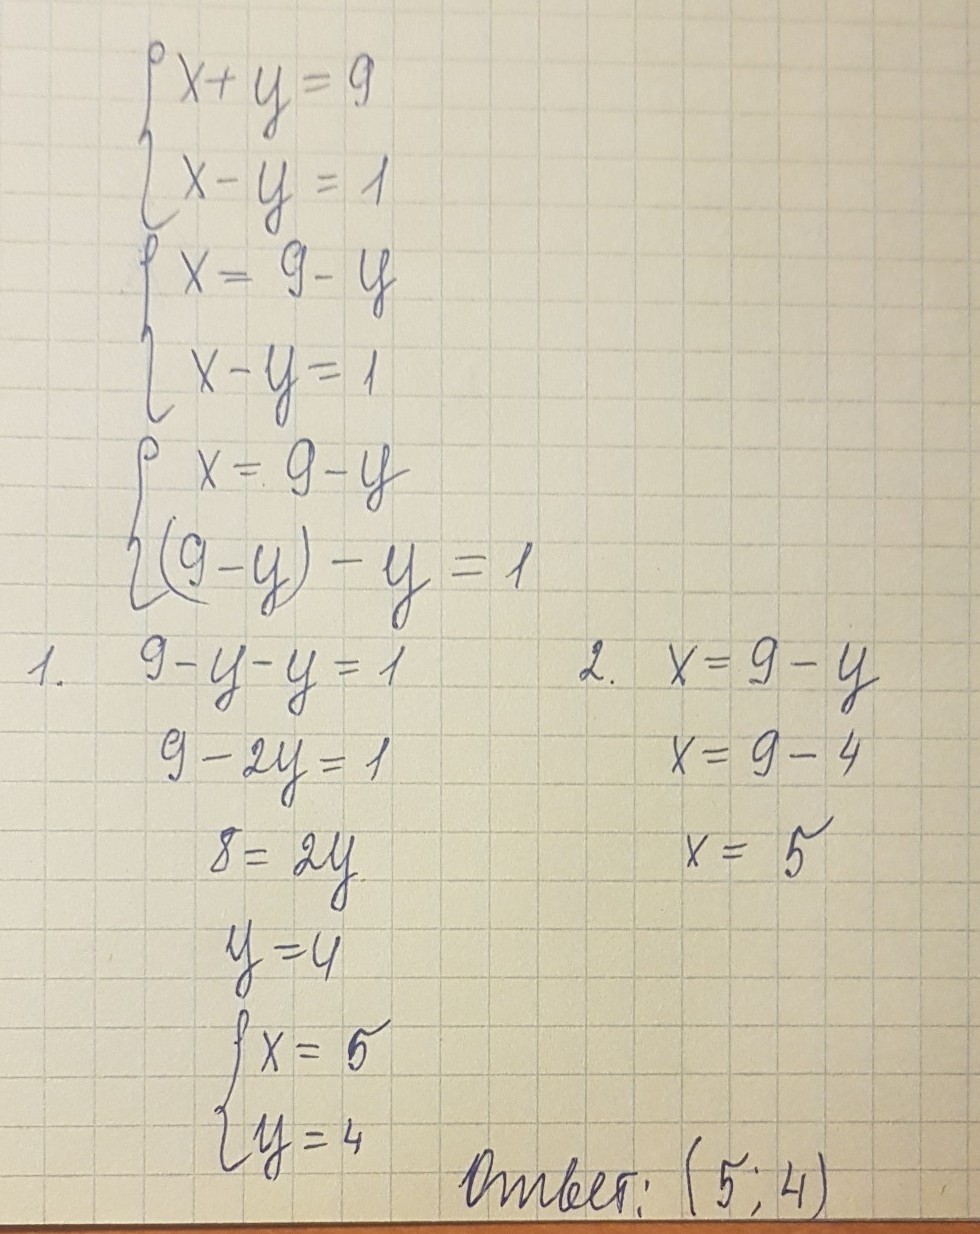 x + y = 9
x - y = 1
x = 9 - y
x - y = 1
x = 9 - y
(9 - y) - y = 1
1. 9 - y - y = 1
9 - 2y = 1
8 = 2y
y = 4
2. x = 9 - y
x = 9 - 4
x = 5
x = 5
y = 4
Ответ: (5; 4)